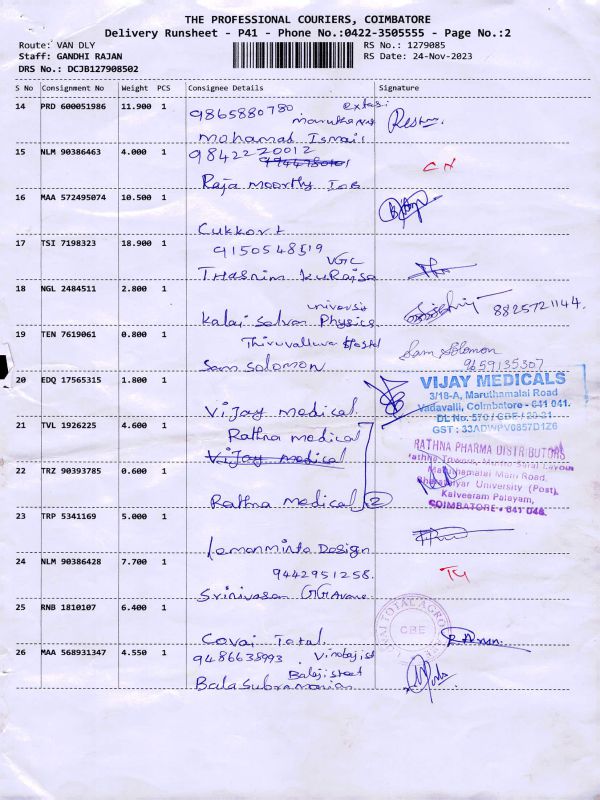 THE PROFESSIONAL COURIERS, COIMBATORE
Delivery Runsheet - P41 - Phone No.:0422-3505555 - Page No.:2
Route: VAN DLY
RS No.: 1279085
Staff: GANDHI RAJAN
RS Date: 24-Nov-2023
DRS No.: DCJB127908502
S No Consignment No Weight PCS Consignee Details Signature
14 PRD 600051986 11.900 1
9865880780
Mohamat Ismail
15 NLM 90386463 4.000 1
9842220012
Raja Moorthy IOB
16 MAA 572495074 10.500 1
Cukkor.t
17 TSI 7198323 18.900 1
9150548519
VGC
Thasnim
18 NGL 2484511 2.800 1
Kalai Selvan Physics
8825721144.
19 TEN 7619061 0.800 1
Thiruvalluvar Hostel
Sam Solomon
Sam Solomon
9659135307
20 EDQ 17565315 1.800 1
Vijay medical.
VIJAY MEDICALS
3/18-A, Maruthamalai Road
Vadavalli, Coimbatore - 641 041.
DL No. 570 / CBE / 20-21
GST : 33ADWPV0857D1Z6
21 TVL 1926225 4.600 1
Rathna medical
Vijay medical
RATHNA PHARMA DISTRIBUTORS
Maruthamalai Main Road,
Bharathiyar University (Post),
Kalveeram Palayam,
COIMBATORE - 641 046.
22 TRZ 90393785 0.600 1
Rathna medical 2
23 TRP 5341169 5.000 1
Lemonminta Design
24 NLM 90386428 7.700 1
9442951258.
Srinivasan
25 RNB 1810107 6.400 1
Covai Total.
TOTAL AGRO
CBE
26 MAA 568931347 4.550 1
9486638993
Balaji street
Balasubramanian